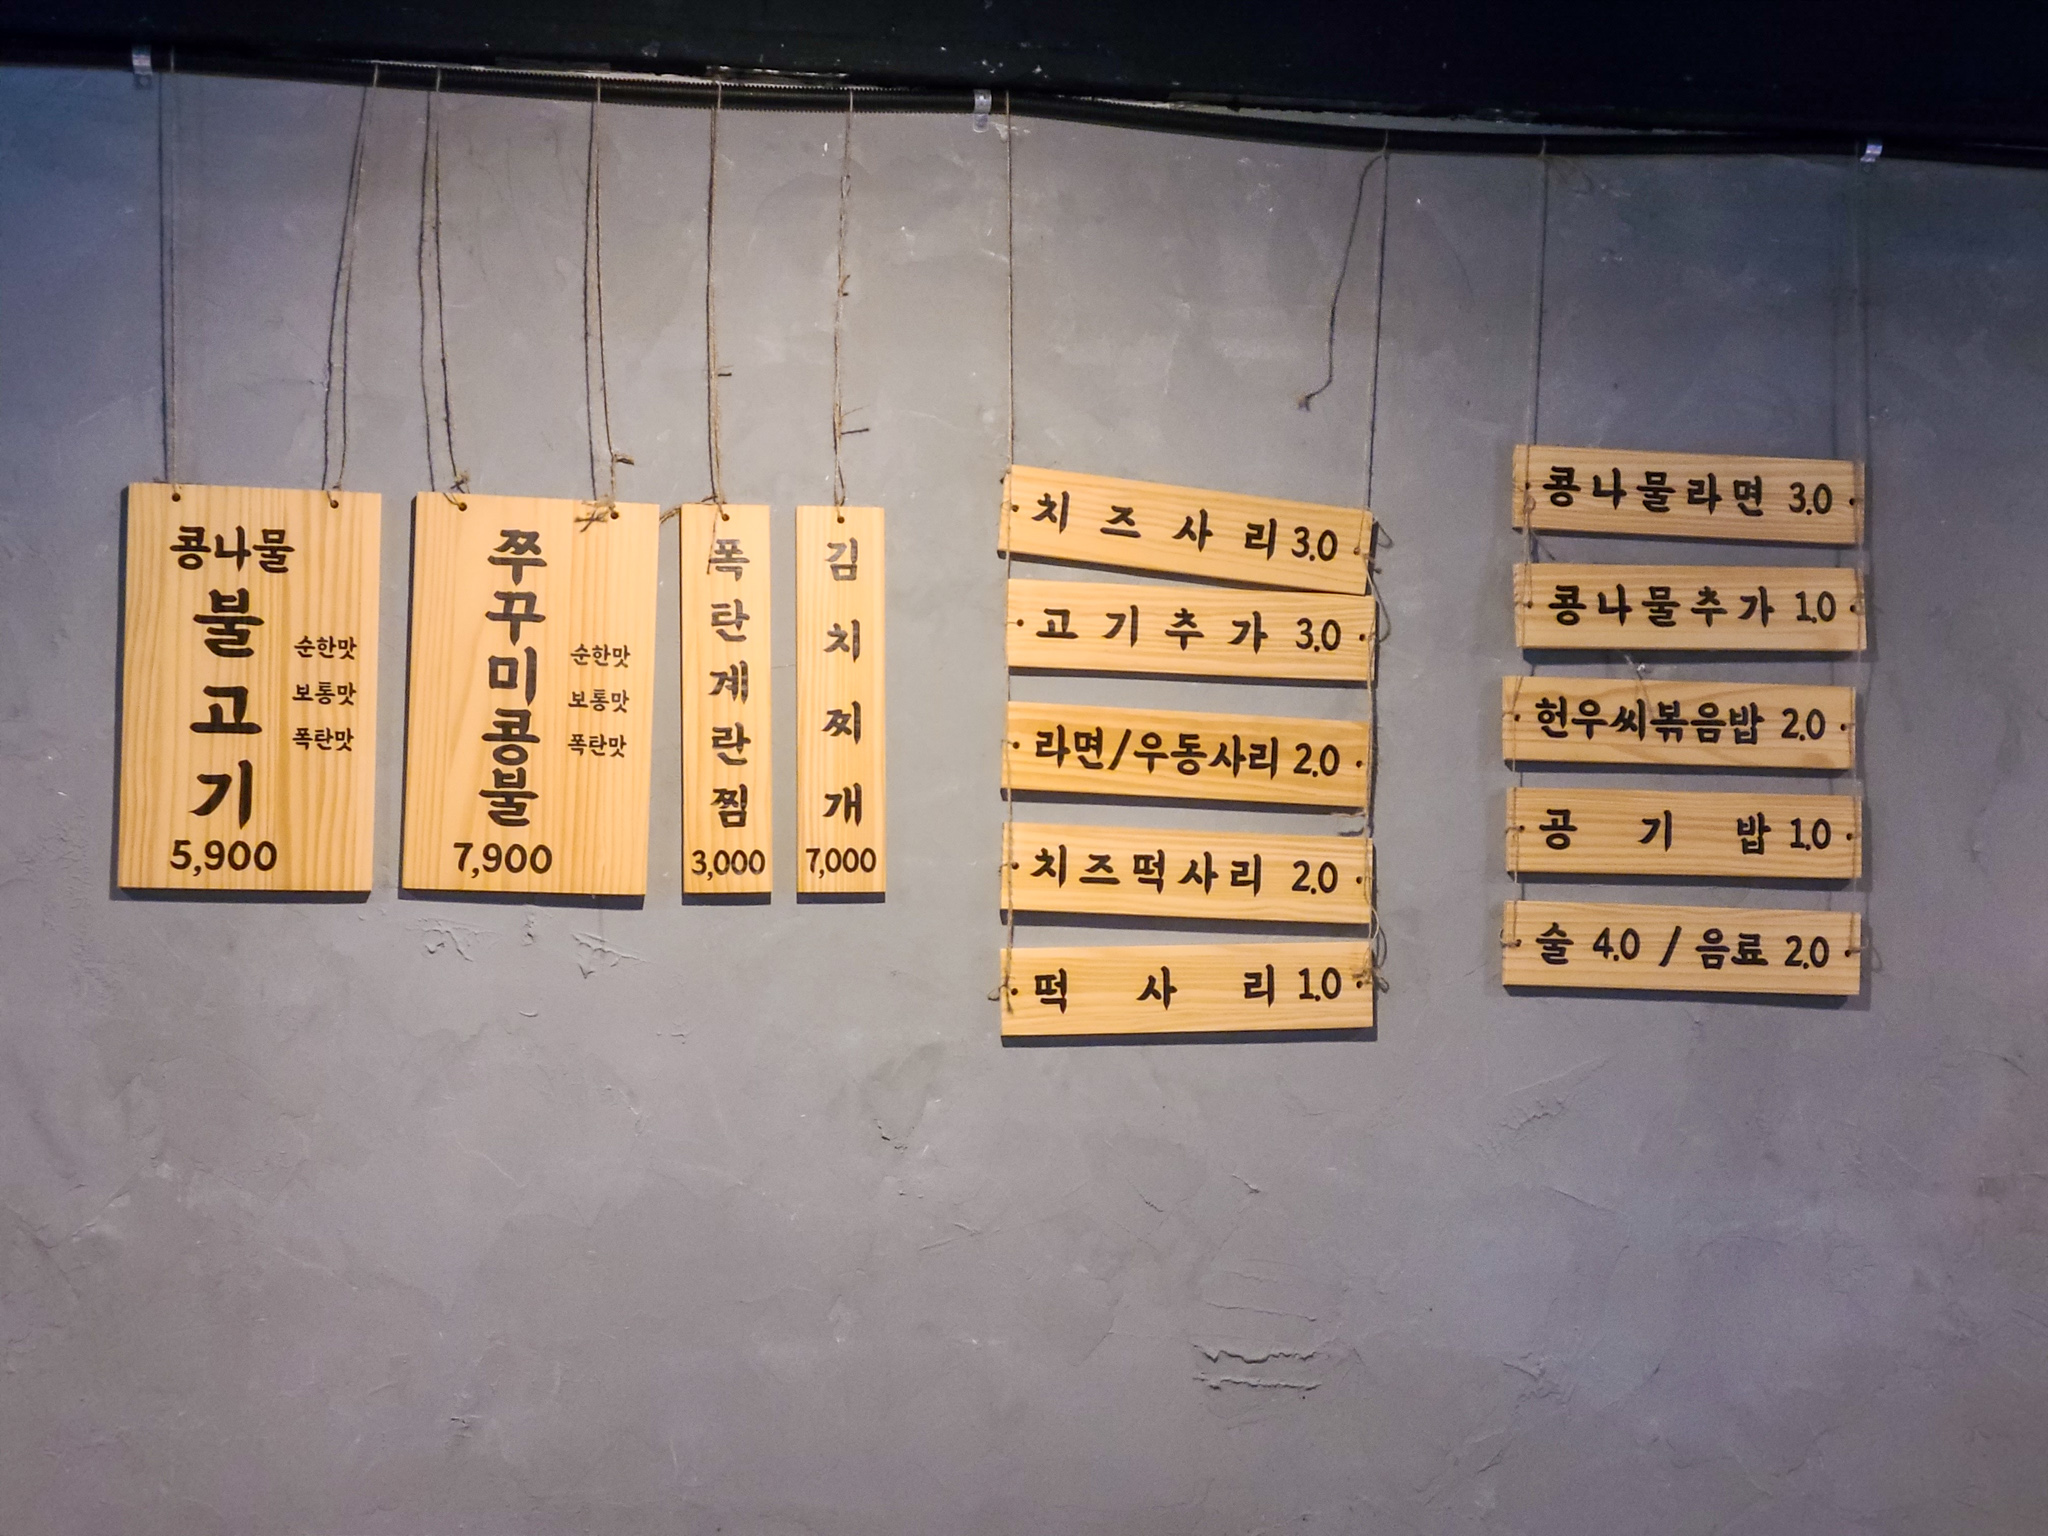 콩나물
불
고
기
순한맛
보통맛
폭탄맛
5,900
쭈
꾸
미
콩
불
순한맛
보통맛
폭탄맛
7,900
폭
탄
계
란
찜
3,000
김
치
찌
개
7,000
치 즈 사 리 3.0
고 기 추 가 3.0
라면/우동사리 2.0
치즈떡사리 2.0
떡 사 리 1.0
콩나물라면 3.0
콩나물추가 1.0
헌우씨볶음밥 2.0
공 기 밥 1.0
술 4.0 / 음료 2.0